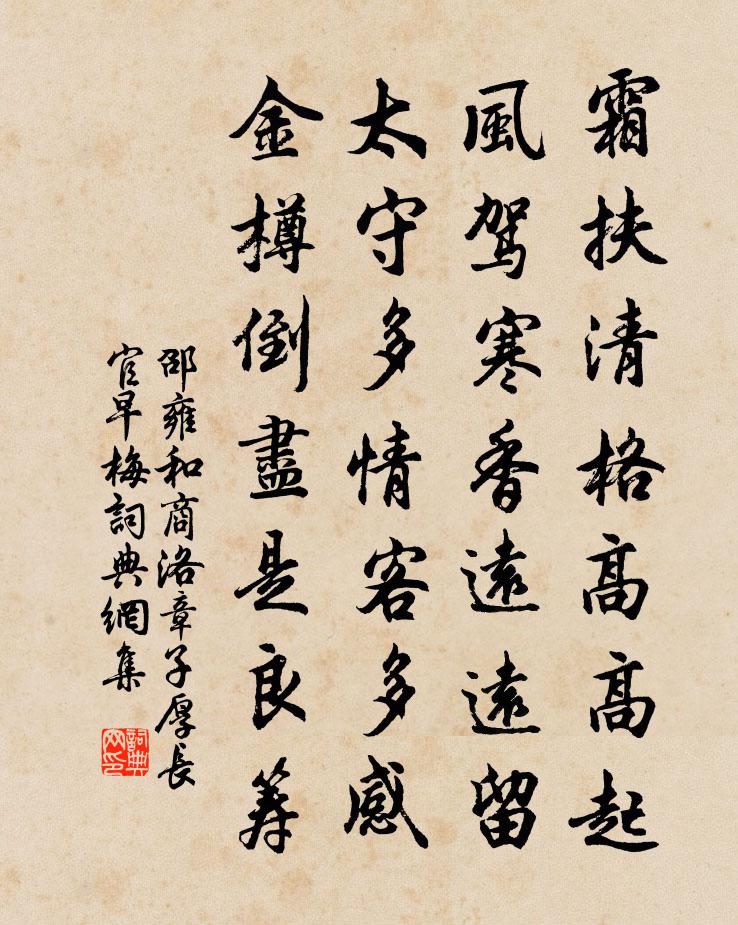 霜扶清格高高起
風駕寒香遠遠留
太守多情客多感
金樽倒盡是良筭
邵雍和商洛章子厚長
官早梅詞典網集
詞典
网印